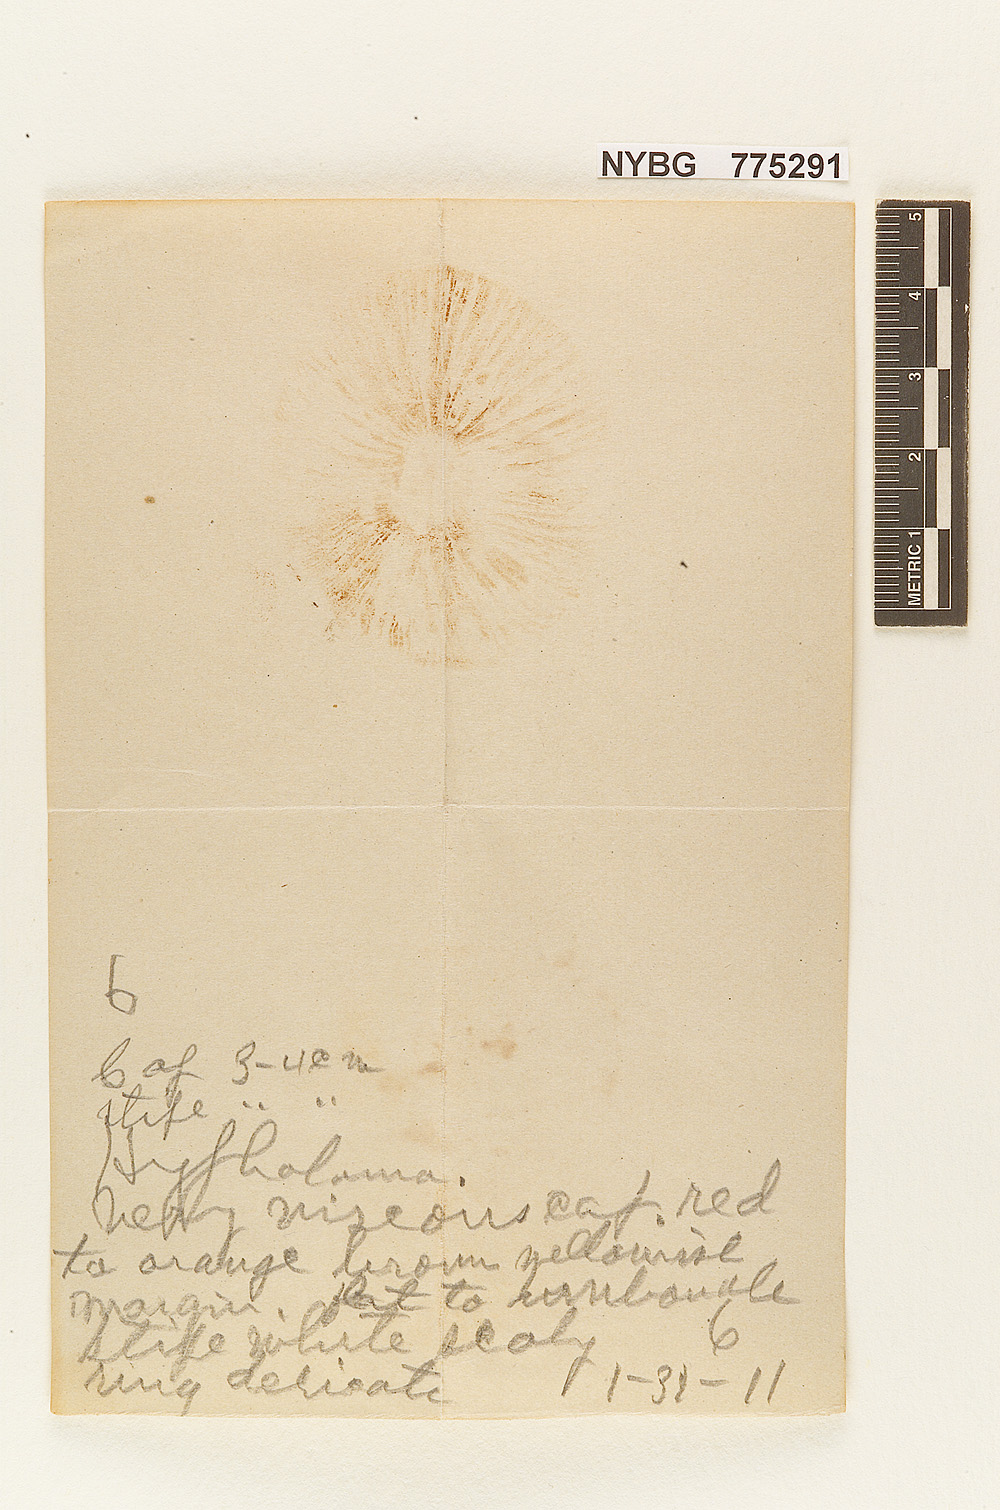 NYBG 775291
5
4
3
2
METRIC 1
6
Cap 3-4cm
stipe " "
Hypholoma.
Very viscous cap. red
to orange brown yellowish
margin. flat to umbonate
stipe white scaly 6
ring delicate 1-31-11